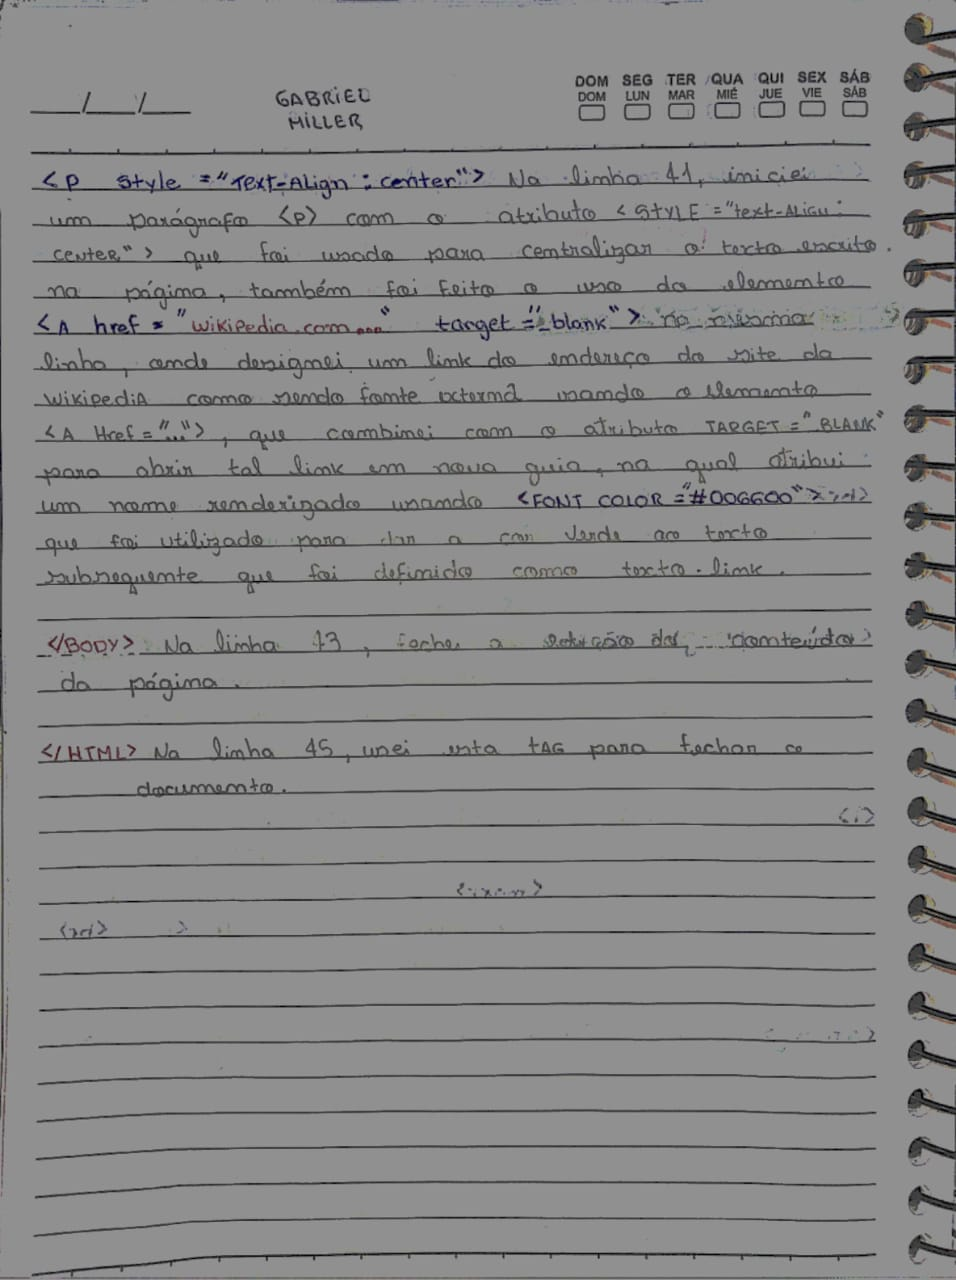 ___/___/___ GABRIEL MILLER
DOM SEG TER QUA QUI SEX SÁB
DOM LUN MAR MIÉ JUE VIE SÁB
<P Style ="Text-Align : center"> Na linha 41, iniciei
um parágrafo <P> com o atributo <STYLE ="text-ALIGN :
CENTER"> que foi usado para centralizar o texto escrito
na página, também foi feito o uso do elemento
<A href = "wikipedia.com..." target ="_blank"> na mesma
linha, onde designei um link do endereço do site da
WikipediA como sendo fonte externa usando o elemento
<A Href="...">, que combinei com o atributo TARGET ="_BLANK"
para abrir tal link em nova guia, na qual atribui
um nome renderizado usando <FONT COLOR ="#006600">
que foi utilizado para dar a cor verde ao texto
subsequente que foi definido como texto-link.
</BODY> Na linha 43, fechei a do conteúdo
da página.
</HTML> Na linha 45, usei esta tAG para fechar o
documento.